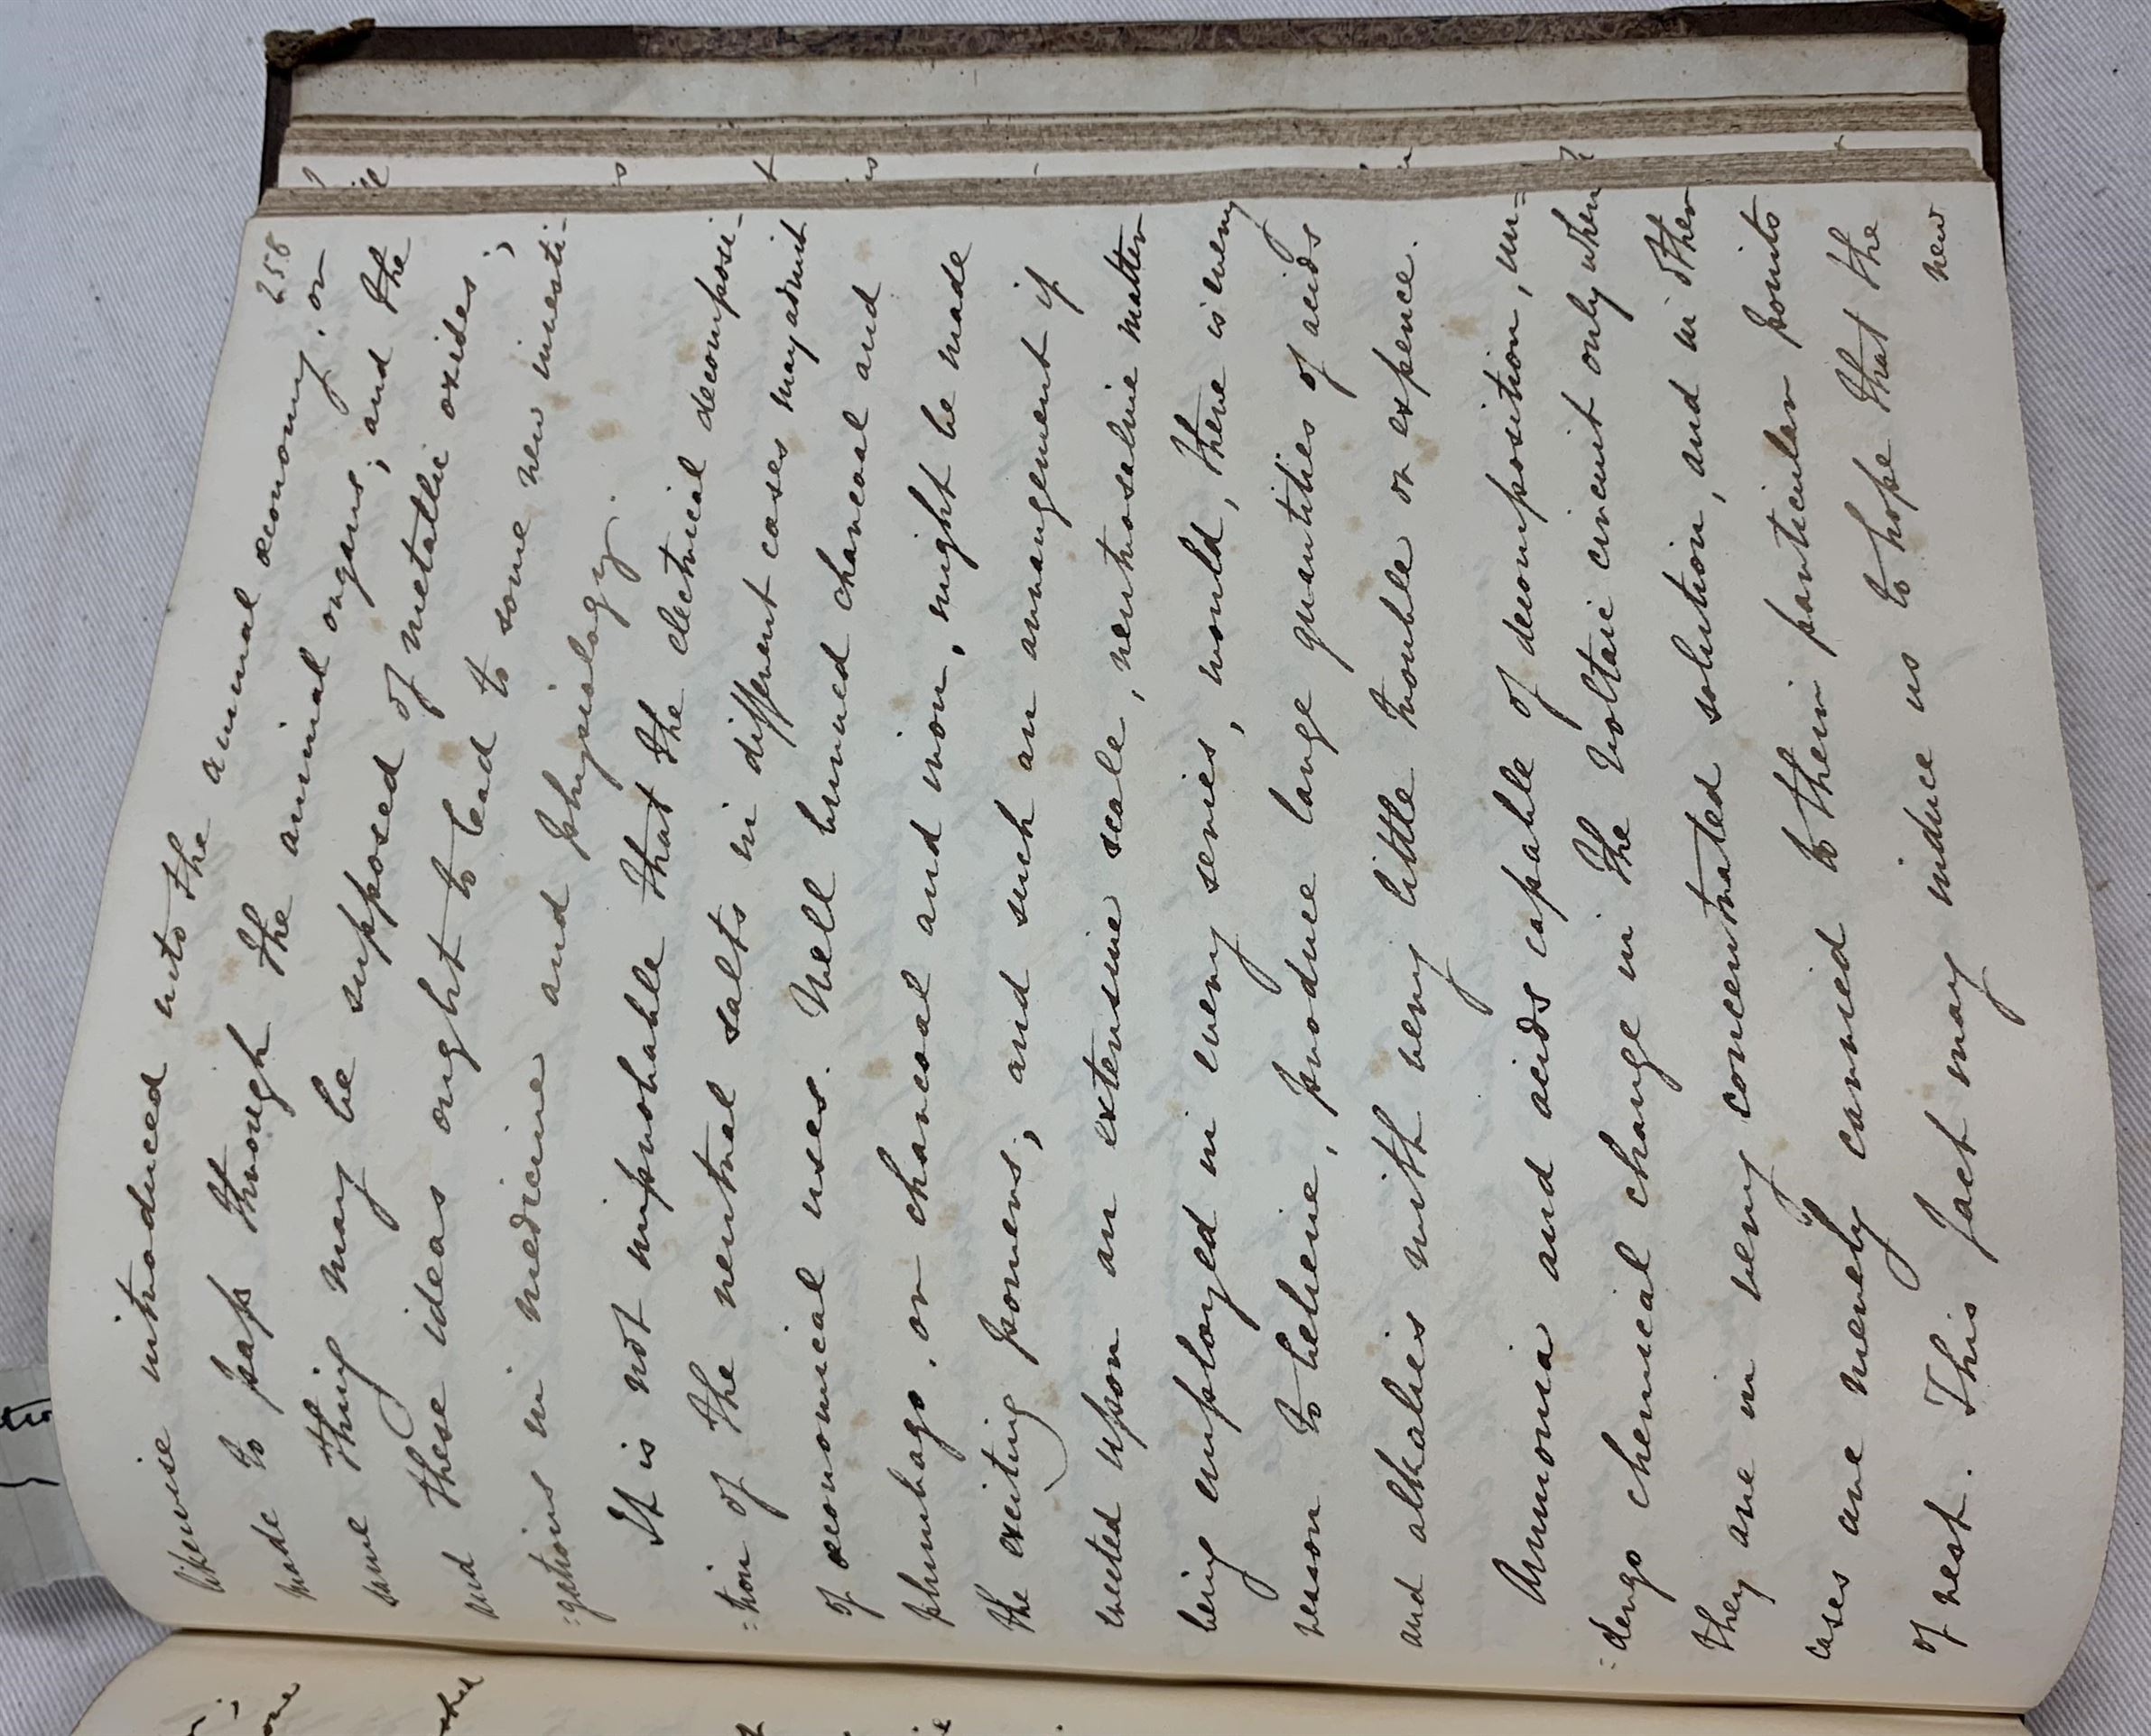 258
likewise introduced into the animal œconomy, or
made to pass through the animal organs; and the
same thing may be supposed of metallic oxides;
and these ideas ought to lead to some new investi-
:gations in medicine and physiology.
It is not improbable that the electrical decomposi-
:tion of the neutral salts in different cases may admit
of œconomical uses. Well burned charcoal and
plumbago, or charcoal and iron, might be made
the exciting powers; and such an arrangement if
erected upon an extensive scale, neutrosaline matter
being employed in every series, would, there is every
reason to believe, produce large quantities of acids
and alkalies with very little trouble or expence.
Ammonia and acids capable of decomposition, un=
:dergo chemical change in the Voltaic circuit only when
they are in very concentrated solution, and in other
cases are merely carried to their particular points
of rest. This fact may induce us to hope that the
new